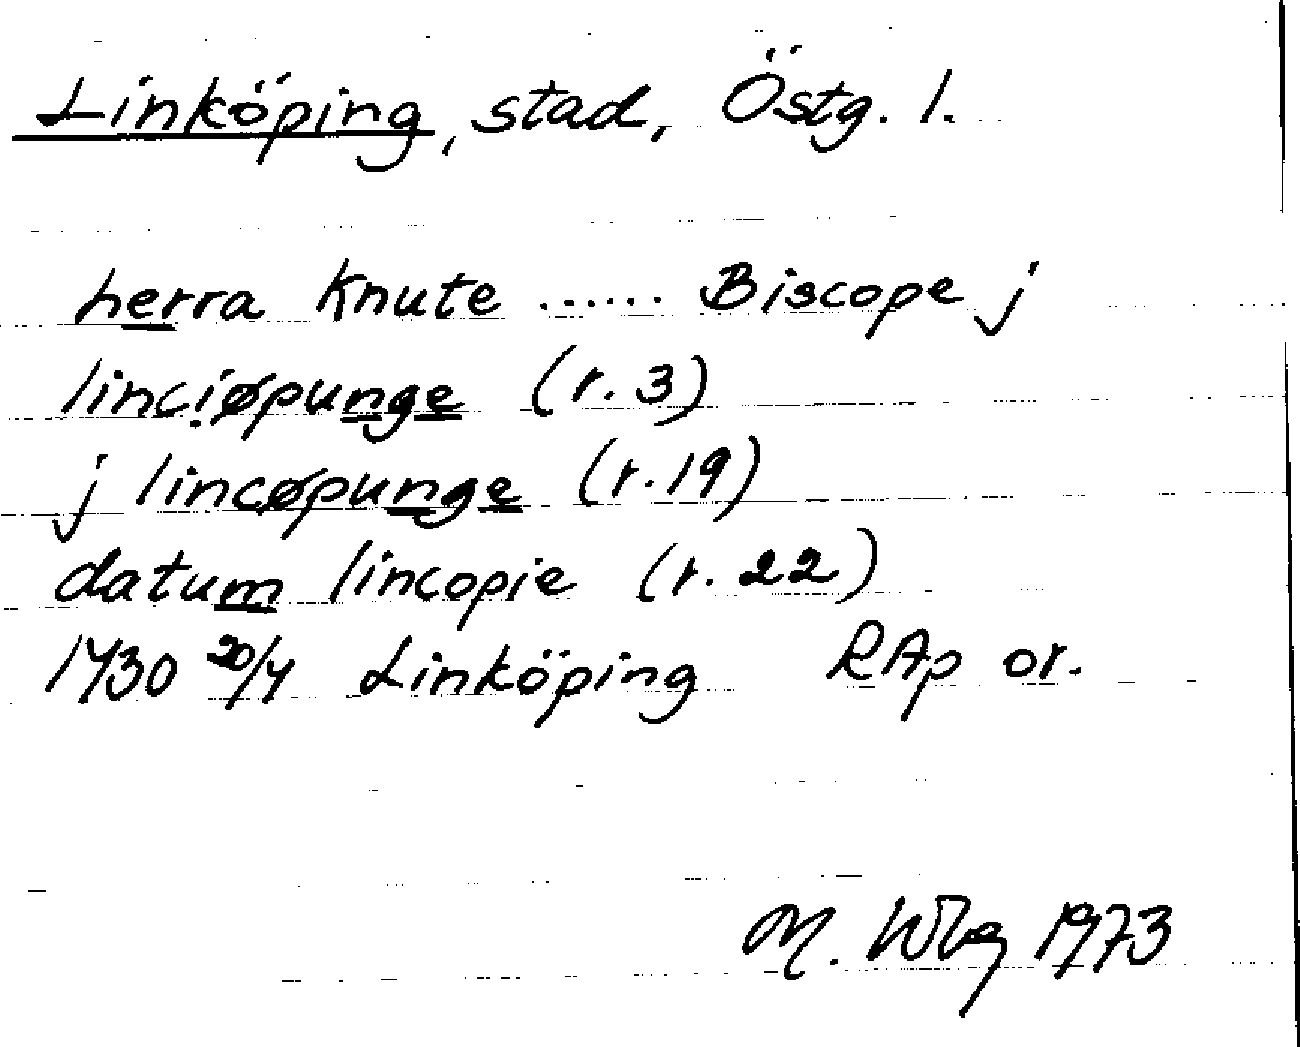 Linköping, stad, Östg. l.
herra Knute ...... Biscope j
linciøpunge (r. 3)
j lincøpunge (r. 19)
datum lincopie (r. 22)
1430 20/4 Linköping RAp or.
M. Wbg 1973